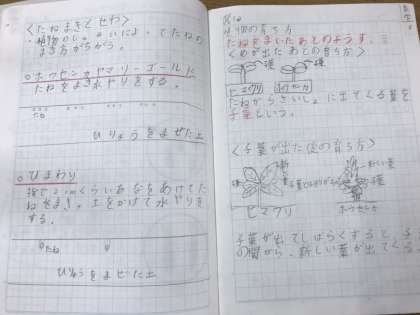 〈たねまき〈せわ〉
植物のしゅるいによってたねの
まき方がちがう。
○ホウセンカヤマリーゴールド
たねをまき水やりをする。
たね
ひりょうをまぜた土
○ひまわり
指で2cmくらいあなをあけてた
ねをまき、土をかけて水やりを
する。
たね
ひりょうをまぜた土
植物の育ち方
たねをまいたあとのようす
〈めが出たあとの育ち方〉
ヒマワリ
ホウセンカ
たねからさいしょに出てくる葉を
子葉という。
〈子葉が出た後の育ち方〉
ヒマワリ
ホウセンカ
子葉が出てしばらくすると、子
の間から、新しい葉が出てくる